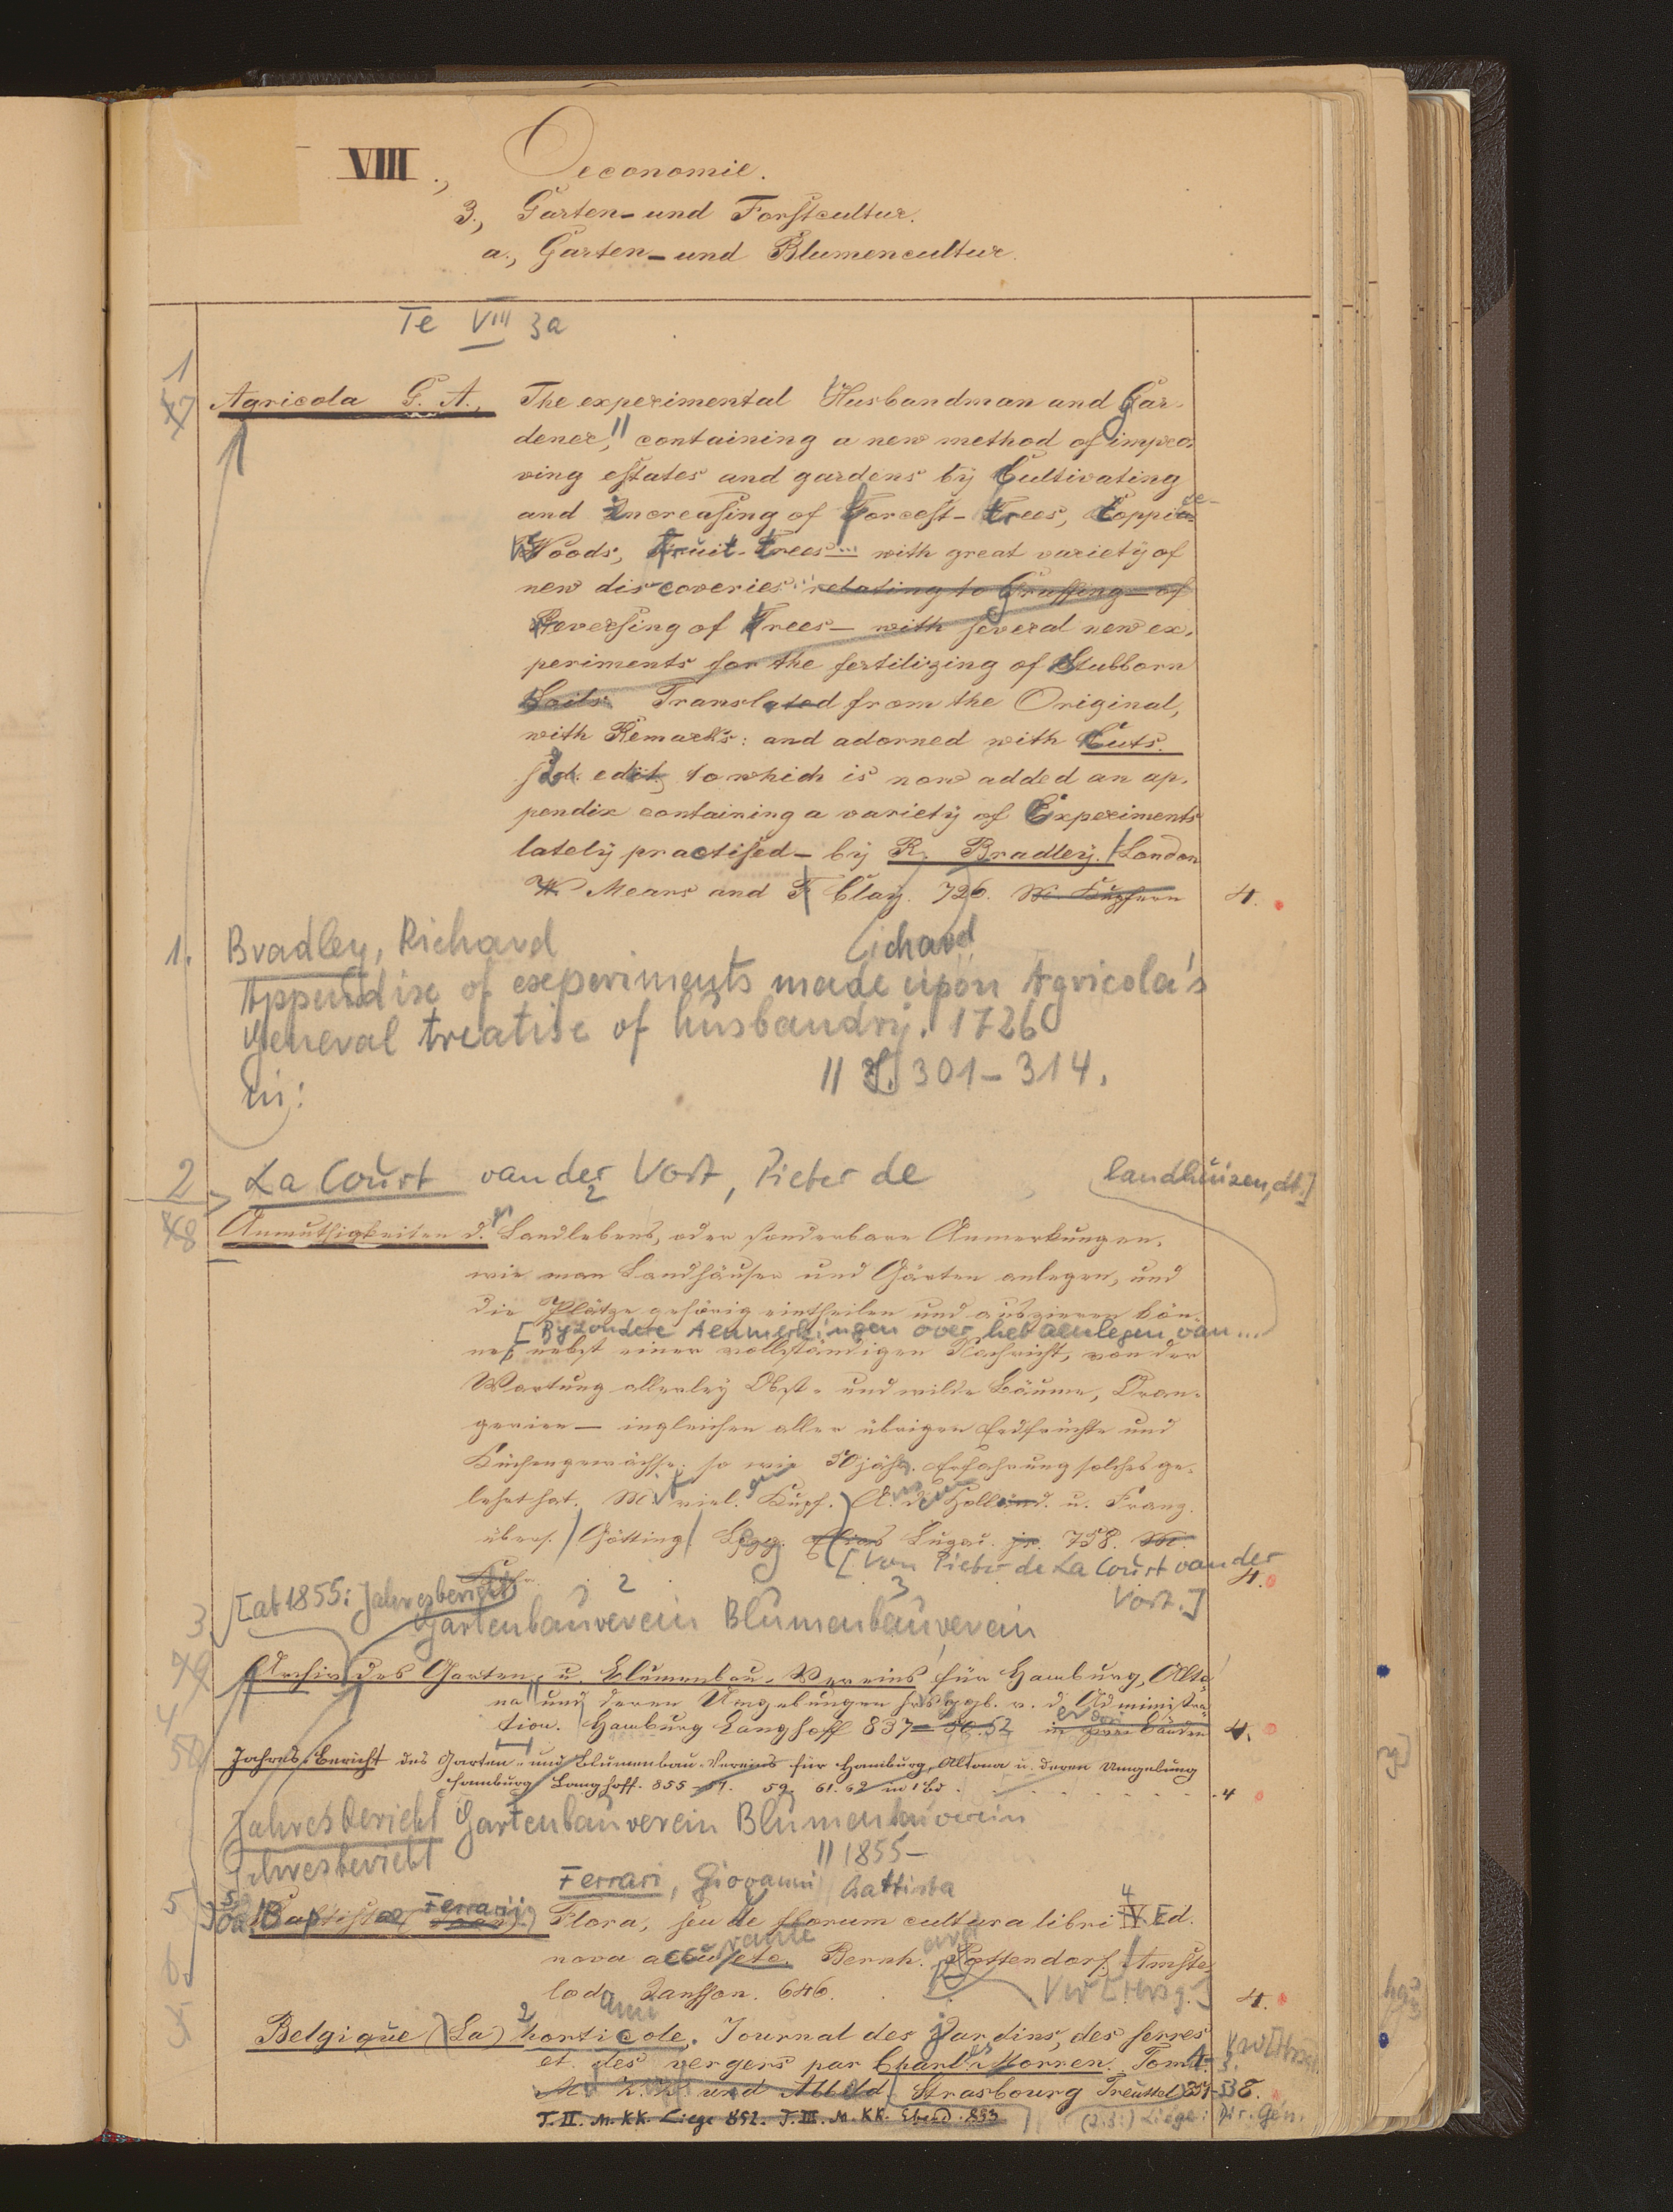 VIII., Oeconomie.
3., Garten- und Forstcultur.
a., Garten- und Blumencultur.
Te VIII 3a
1
47
Agricola G. A., The experimental Husbandman and Gar-
dener, containing a new method of impro-
ving estates and gardens by Cultivating
and Increasing of Forrest-Trees, Coppice
Woods, Fruit-Trees... with great variety of
new discoveries relating to Graffing — of
Reversing of Trees — with several new ex-
periments for the fertilizing of Stubborn
Soils. Translated from the Original,
with Remarks: and adorned with Cuts.
2d. edit. to which is now added an ap-
pendix containing a variety of Experiments
lately practised — by R. Bradley. London
W Mears and F Clay. 726. M. Kupfern 4.
1. Bradley, Richard
ichard
Appendix of experiments made upon Agricola's
general treatise of husbandry. 1726
in: || S. 301-314.
2 La Court van der Vort, Pieter de
landhuizen, dt.]
48
Anmuthigkeiten d. Landlebens, oder sonderbare Anmerkungen,
wie man Landhäuser und Gärten anlegen, und
die Plätze gehörig eintheilen und auszieren kön-
[Byzondere Aenmerkingen over het aenlegen van...
ne, nebst einer vollständigen Nachricht, von der
Wartung allerley Obst- und wilde Bäume, Oran-
gerien — ingleichen aller übrigen Erdfrüchte und
Küchengewächse; so wie 50jähr. Erfahrung solches ge-
lehrt hat. M. viel. Kupf. A. d. Holländ. u. Franz.
übers. Götting Lpzg. Lugai. jr. 758. M.
[Von Pieter de La Court van der
Vort.] 4.
3. [ab 1855: Jahresbericht
Gartenbauverein Blumenbauverein
49
Archiv des Garten- u. Blumenbau-Vereins für Hamburg, Alto-
na und deren Umgebungen hrsggb. v. d. Administra-
tion. Hamburg Langhoff 837-50.52 in zwei Bänden 4.
4
50
Jahres-Bericht des Garten- und Blumenbau-Vereins für Hamburg, Altona u. deren Umgebung
Hamburg Langhoff. 855-57. 59. 61. 62 in 1 Bd . . . . . . . 4
Jahresbericht Gartenbauverein Blumenbauverein
Jahresbericht || 1855-
Ferrari, Giovanni Battista
5
Baptistae Ferrarii Flora, seu de florum cultura libri IV. Ed.
nova accurante Bernh. Rottendorf. Amste-
lod. Jansson. 646. Vw [Hrsg.] 4.
6.
Belgique (La) horticole. Journal des Jardins, des serres
et des vergers par Charles Morren. Tom 1. 3.
Strasbourg Treuttel 851-53 8.
T. II. M. KK. Liege 852. T. III. M. KK. Ebend. 853
(2.3:) Liège: Dir. Gén.